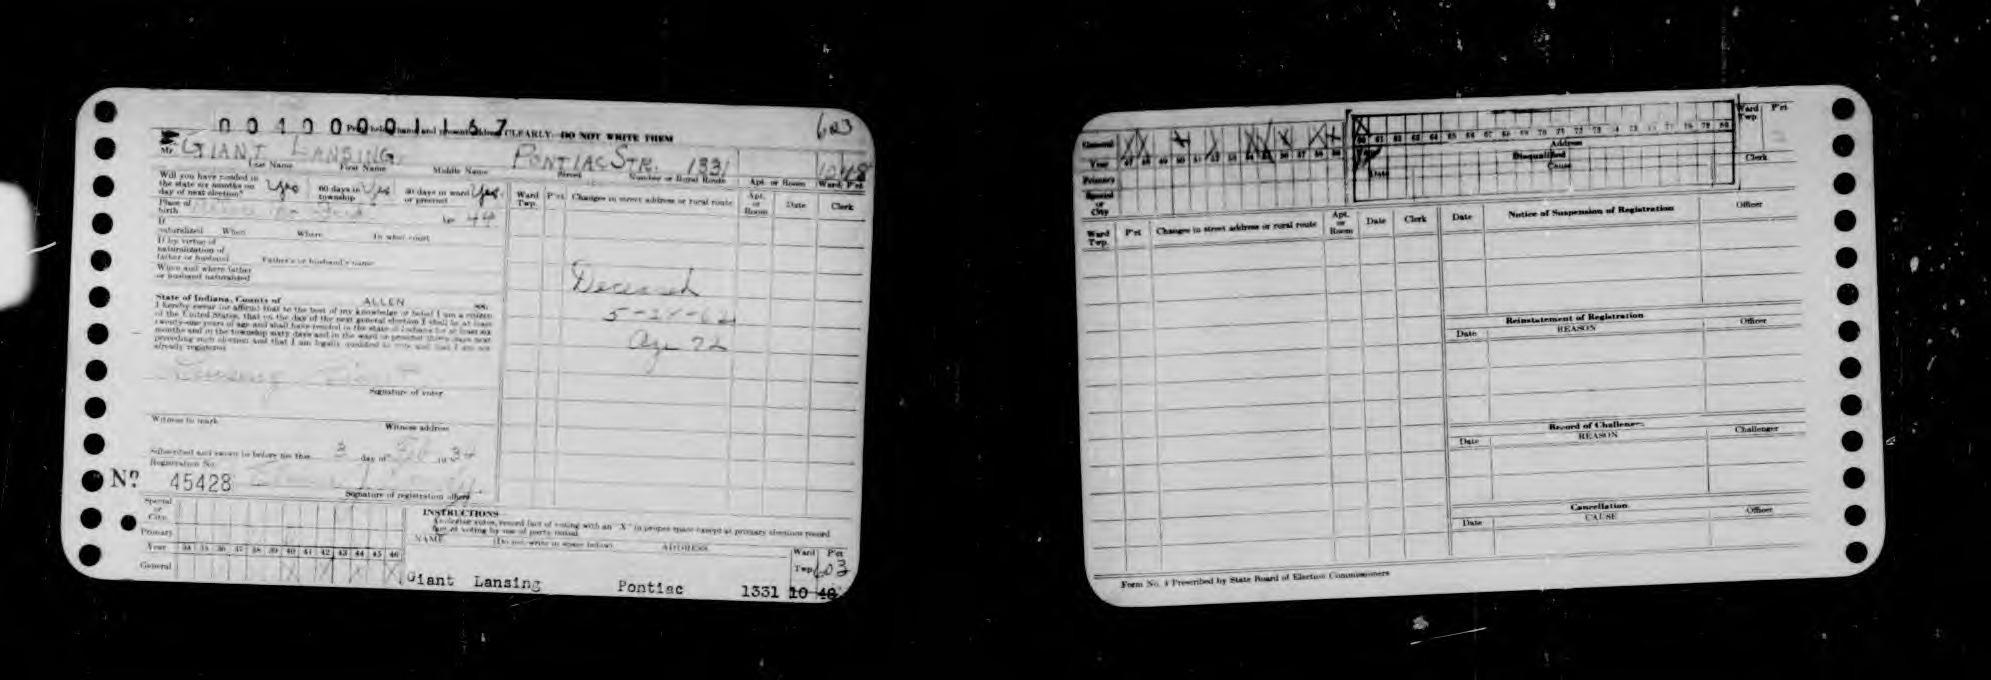 001000001157
Print both name and present address CLEARLY. DO NOT WRITE THEM
603
Mr. GIANT LANSING. PONTIAC STR. 1331 10 48
Last Name First Name Middle Name Street Number or Rural Route Apt. or Room Ward P'ct
Will you have resided in the state six months on day of next election? Yes 60 days in township Yes 30 days in ward or precinct Yes.
Ward Twp. P'ct Changes in street address or rural route Apt. or Room Date Clerk
Place of birth Age 44
If naturalized When Where In what court
If by virtue of naturalization of father or husband Father's or husband's name
When and where father or husband naturalized
State of Indiana, County of ALLEN ss:
I hereby swear (or affirm) that to the best of my knowledge or belief I am a citizen
of the United States, that on the day of the next general election I shall be at least
twenty-one years of age and shall have resided in the state of Indiana for at least six
months and in the township sixty days and in the ward or precinct thirty days next
preceding such election and that I am legally qualified to vote and that I am not
already registered
Deceased
5-28-62
Age 72
Lansing Giant
Signature of voter
Witness to mark Witness address
Subscribed and sworn to before me this 3 day of 19 34
Registration No.
No 45428
Signature of registration officer
Special or City
Primary
Year 34 35 36 37 38 39 40 41 42 43 44 45 46
General X X X X
INSTRUCTIONS
fact of voting with an "X" in proper space except at primary elections record
fact of voting by use of party initial
NAME (Do not write in space below) ADDRESS Ward Twp P'ct
603
Giant Lansing Pontiac 1331 10 48
General
Year 47 48 49 50 51 52 53 54 55 56 57 58 59 60 61 62 63 64 65 66 67 68 69 70 71 72 73 74 75 76 77 78 79 80
Ward Twp. P'ct
Address
Primary
Disqualified
Cause
Date
Clerk
Special or City
Ward Twp. P'ct Changes in street address or rural route Apt. or Room Date Clerk
Date Notice of Suspension of Registration Officer
Reinstatement of Registration
Date REASON Officer
Record of Challenges
Date REASON Challenger
Cancellation
Date CAUSE Officer
Form No. 4 Prescribed by State Board of Election Commissioners